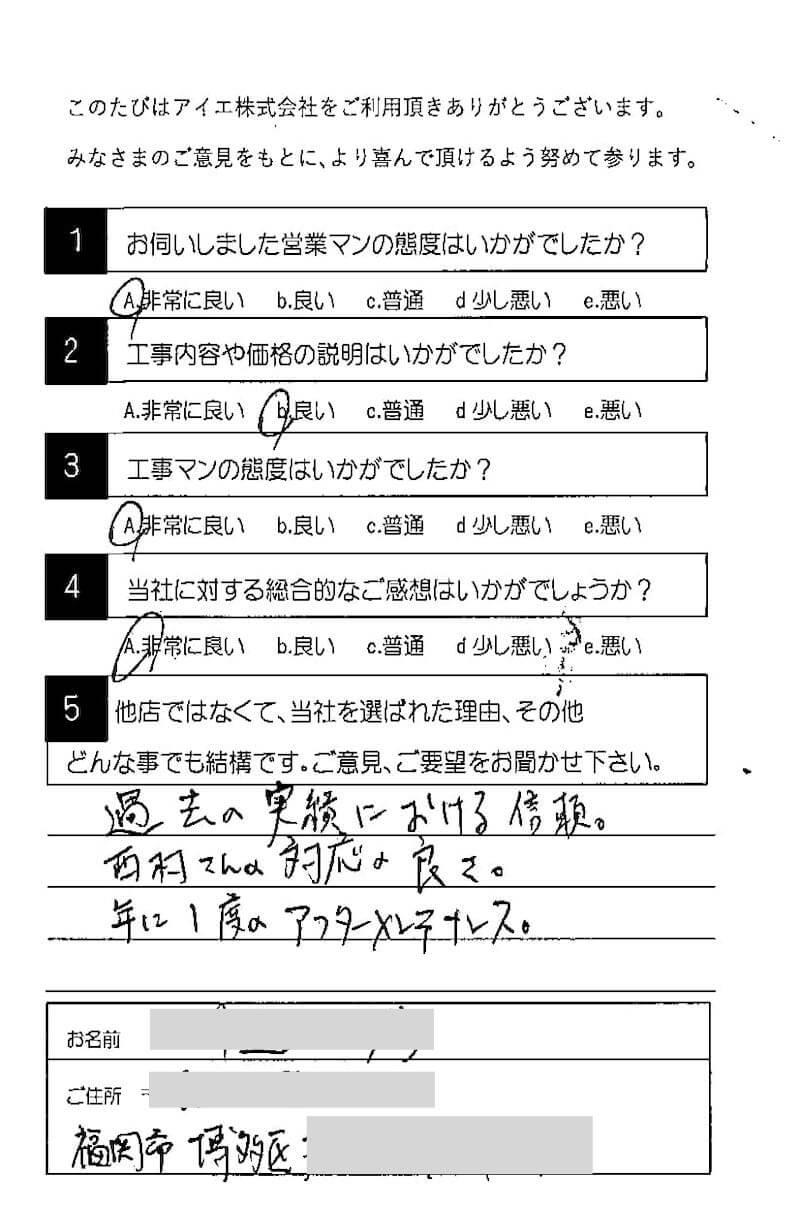 このたびはアイエ株式会社をご利用頂きありがとうございます。
みなさまのご意見をもとに、より喜んで頂けるよう努めて参ります。
1 お伺いしました営業マンの態度はいかがでしたか？
A.非常に良い b.良い c.普通 d少し悪い e.悪い
2 工事内容や価格の説明はいかがでしたか？
A.非常に良い b.良い c.普通 d少し悪い e.悪い
3 工事マンの態度はいかがでしたか？
A.非常に良い b.良い c.普通 d少し悪い e.悪い
4 当社に対する総合的なご感想はいかがでしょうか？
A.非常に良い b.良い c.普通 d少し悪い e.悪い
5 他店ではなくて、当社を選ばれた理由、その他
どんな事でも結構です。ご意見、ご要望をお聞かせ下さい。
過去の実績における信頼。
西村さんの対応の良さ。
年に1度のアフターメンテナンス。
お名前
ご住所 〒
福岡市博多区